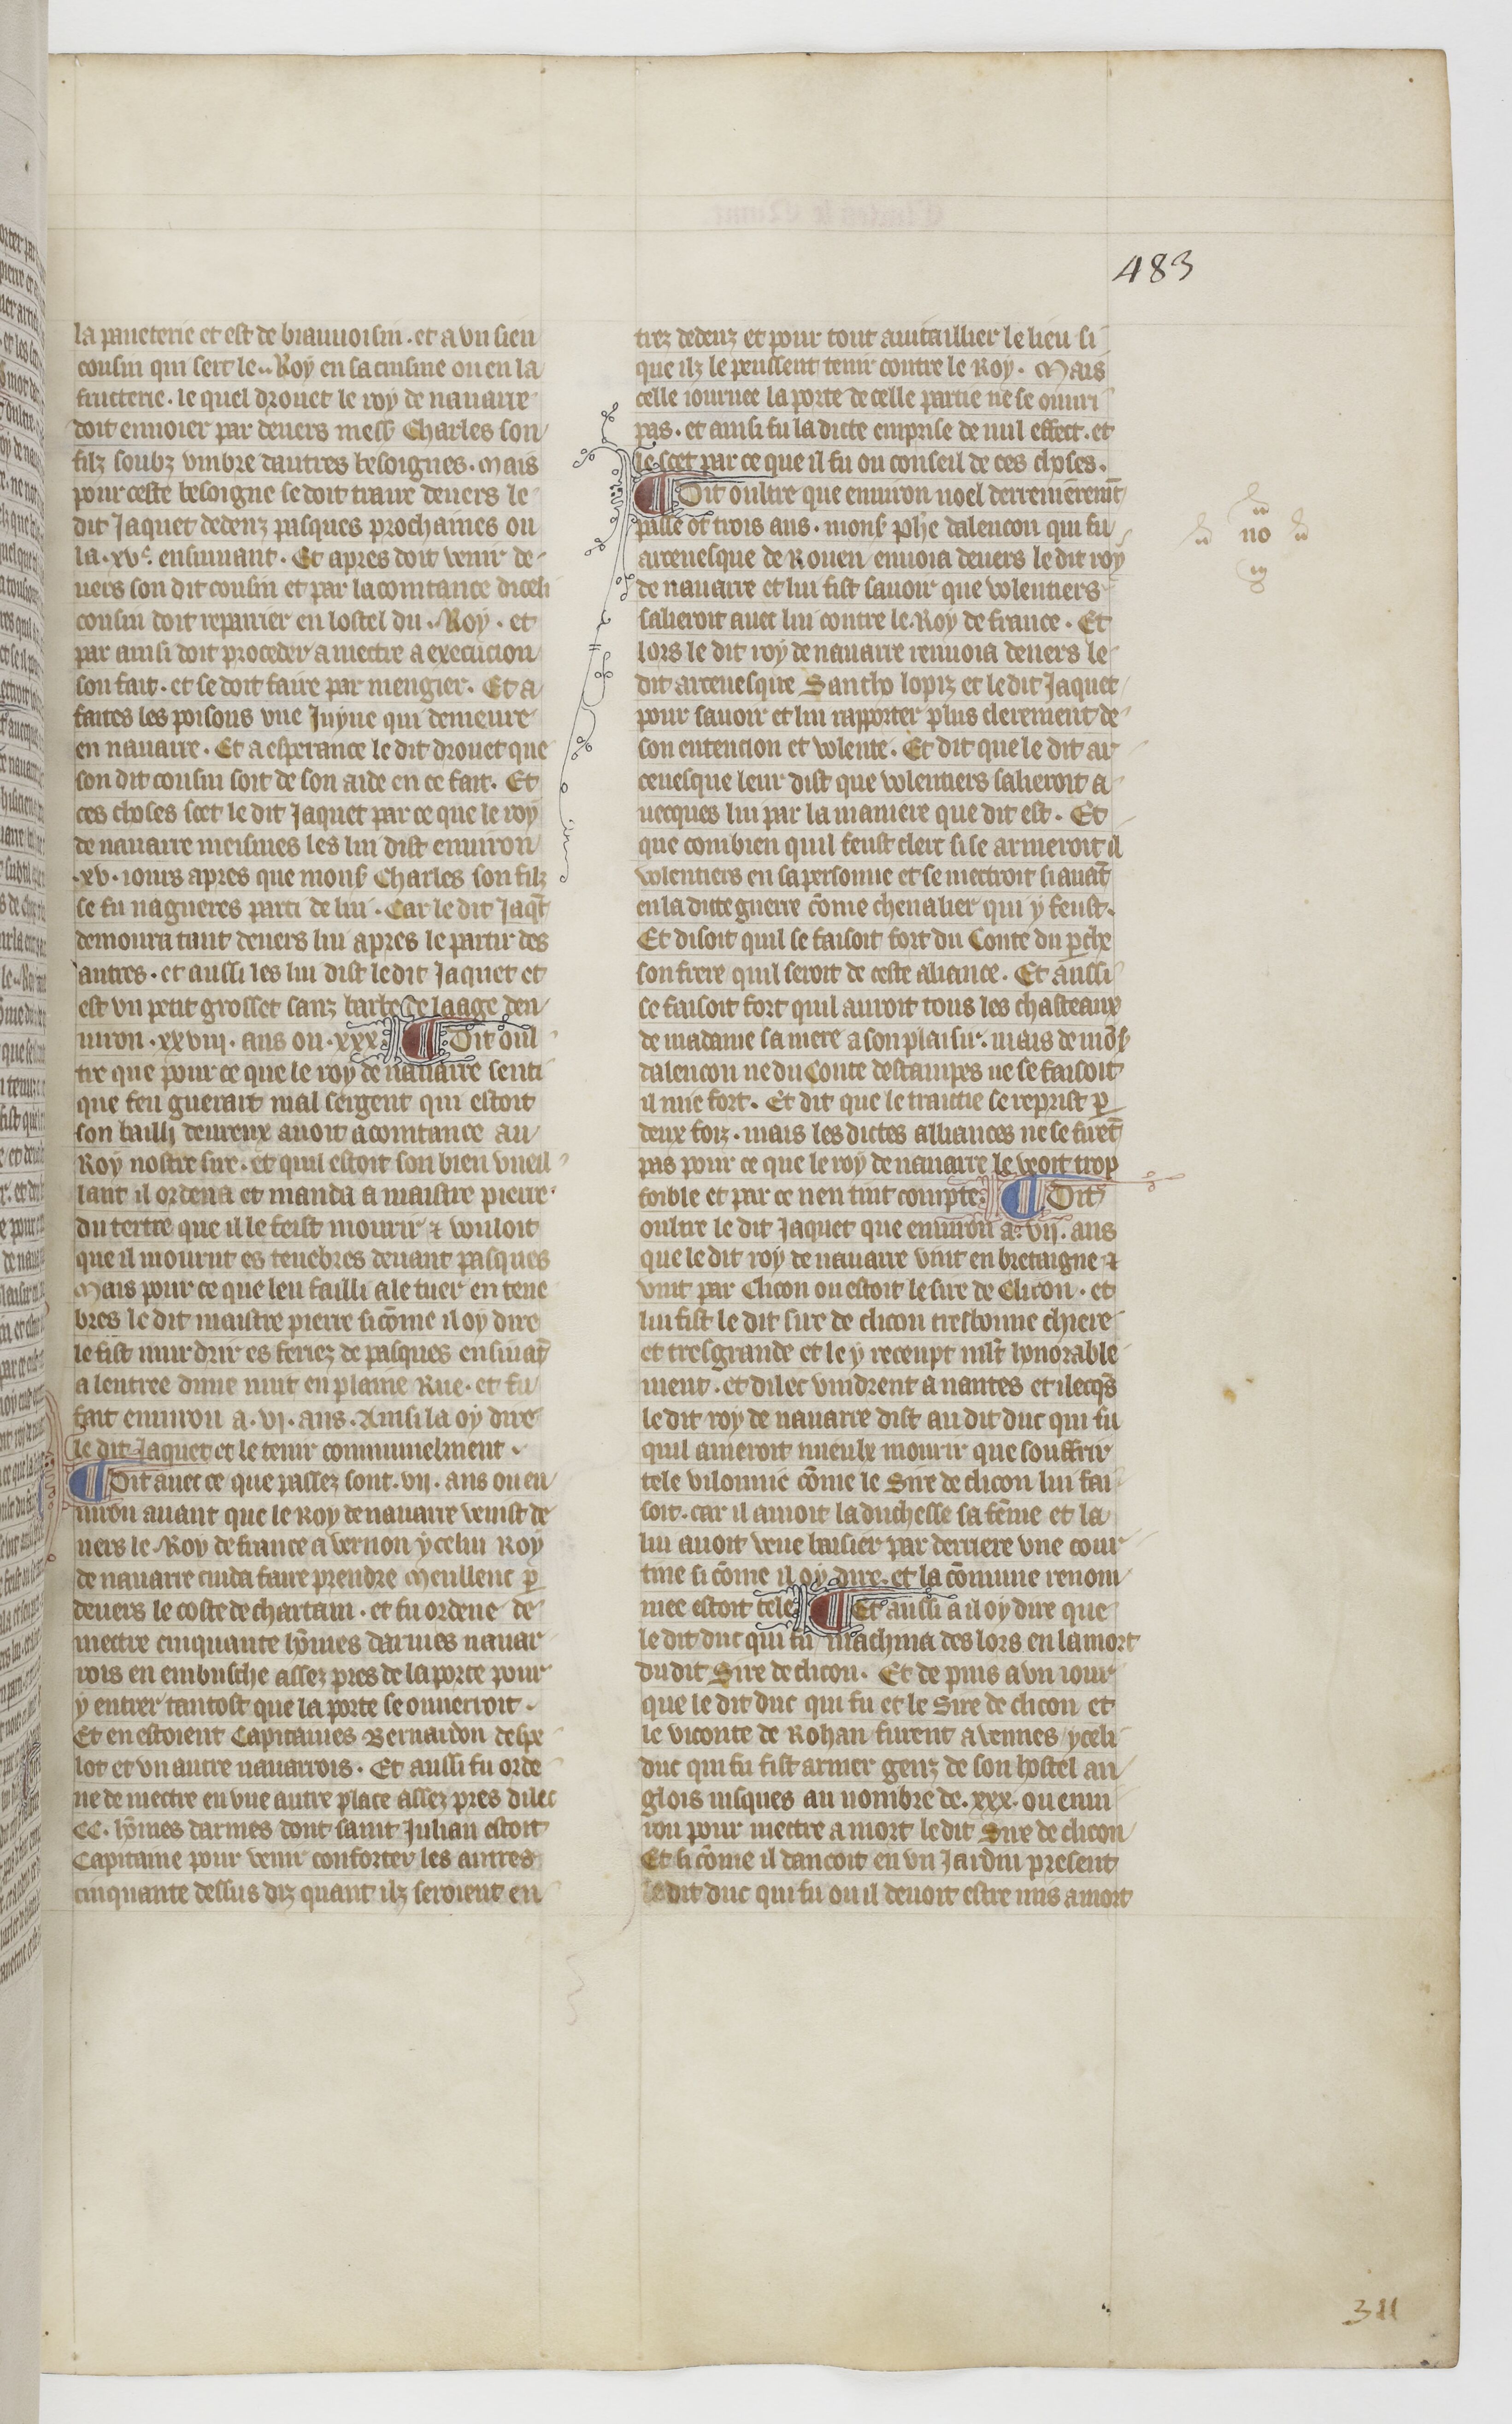 483
la paneterie et est de biauuoisin. et a vn sien
cousin qui sert le Roy en sa cuisine ou en la
fructerie. le quel drouet le roy de nauarre
doit enuoier par deuers mess Charles son
filz soubz vmbre dautres besoignes. Mais
pour ceste besoigne se doit traire deuers le
dit Jaquet dedenz pasques prochaines ou
la .xve. ensuiuant. Et apres doit venir de
uers son dit cousin et par lacointance diceli
cousin doit repairier en lostel du Roy. et
par ainsi doit proceder a mectre a execucion
son fait. et se doit faire par mengier. Et a
faites les poisons vne Juyue qui demeure
en nauarre. Et a esperance le dit drouet que
son dit cousin soit de son aide en ce fait. Et
ces choses scet le dit Jaquet par ce que le roy
de nauarre meismes les lui dist enuiron
.xv. iours apres que mons Charles son filz
se fu nagueres parti de lui. Car le dit Jaqt
demoura tant deuers lui apres le partir des
autres. et aussi les lui dist le dit Jaquet et
est vn petit grosset sanz barbe de laage den
uiron .xxviii. ans ou .xxx. ¶ Dit oul
tre que pour ce que le roy de nauarre senti
que feu guerart mal sergent qui estoit
son bailli deureux auoit acointance au
Roy nostre sire. et quil estoit son bien vueil
lant il ordena et manda a maistre pierre
du tertre que il le feist mourir ⁊ vouloit
que il mourut es tenebres deuant pasques
Mais pour ce que leu failli a le tuer en tene
bres le dit maistre pierre si cōme il oy dire
le fist murdrir es feriez de pasques ensiuāt
a lentree dune nuit en plaine Rue. et fu
fait enuiron a .vi. ans. Ainsi la oy dire
le dit Jaquet et le tenir communelment.
¶ Dit auec ce que passez sont .vii. ans ou en
uiron auant que le Roy de nauarre venist de
uers le Roy de france a vernon ycelui Roy
de nauarre cuida faire prendre Meullenc p̲
deuers le coste de chartain. et fu ordene de
mectre cinquante hōmes darmes nauar
rois en embusche assez pres de la porte pour
y entrer tantost que la porte se ouuerroit.
Et en estoient Capitaines Bernardon despe
lot et vn autre nauarrois. Et aussi fu orde
ne de mectre en vne autre place assez pres dilec
CC. hōmes darmes dont saint Julian estoit
Capitaine pour venir conforter les autres
cinquante dessus diz quant ilz seroient en
trez dedenz et pour tout auitaillier le lieu si
que ilz le peussent tenir contre le Roy. Mais
celle iournee la porte de celle partie ne se ouuri
pas. et ainsi fu la dicte emprise de nul effect. et
le scet par ce que il fu ou conseil de ces choses.
¶ Dit oultre que enuiron noel derrenieremt̄
passe ot trois ans. mons phe dalencon qui fu
arceuesque de Rouen enuoia deuers le dit roy
de nauarre et lui fist sauoir que volentiers
salieroit auec lui contre le Roy de france. Et
lors le dit roy de nauarre renuoia deuers le
dit arceuesque Santho lopiz et le dit Jaquet
pour sauoir et lui rapporter plus clerement de
son entencion et volente. Et dit que le dit ar
ceuesque leur dist que volentiers salieroit a
uecques lui par la maniere que dit est. Et
que combien quil feust clerc si se armeroit il
volentiers en sa personne et se mectroit si auāt
en la dicte guerre cōme cheualier qui y feust.
Et disoit quil se faisoit fort du Conte du p̲che
son frere quil seroit de ceste aliance. Et aussi
se faisoit fort quil auroit tous les chasteaux
de madame sa mere a son plaisir. mais de mōs
dalencon ne du Conte destampes ne se faisoit
il mie fort. Et dit que le traictie se reprist p̲
deux foiz. mais les dictes alliances ne se firēt
pas pour ce que le roy de nauarre le veoit trop
foible et par ce nen tint compte. ¶ Dit
oultre le dit Jaquet que enuiron a .vii. ans
que le dit roy de nauarre vint en bretaigne ⁊
vint par Clicon ou estoit le sire de Clicon. et
lui fist le dit sire de clicon tresbonne chiere
et tresgrande et le y receupt mlt̄ honorable
ment. et dilec vindrent a nantes et ilecqs̄
le dit roy de nauarre dist au dit duc qui fu
quil ameroit mieulx mourir que souffrir
tele vilonnie cōme le Sire de clicon lui fai
soit. car il amoit la duchesse sa fēme et la
lui auoit veue baisier par derriere vne cour
tine si cōme il oy dire. et la cōmune renom
mee estoit tele. ¶ Et aussi a il oy dire que
le dit duc qui fu machina des lors en la mort
du dit Sire de clicon. Et de puis a vn iour
que le dit duc qui fu et le Sire de clicon et
le viconte de Rohan furent a vennes yceli
duc qui fu fist armer genz de son hostel an
glois iusques au nombre de .xxx. ou enui
ron pour mectre a mort le dit Sire de clicon
Et si cōme il dancoit en vn Jardin present
le dit duc qui fu ou il deuoit estre mis a mort
no
311